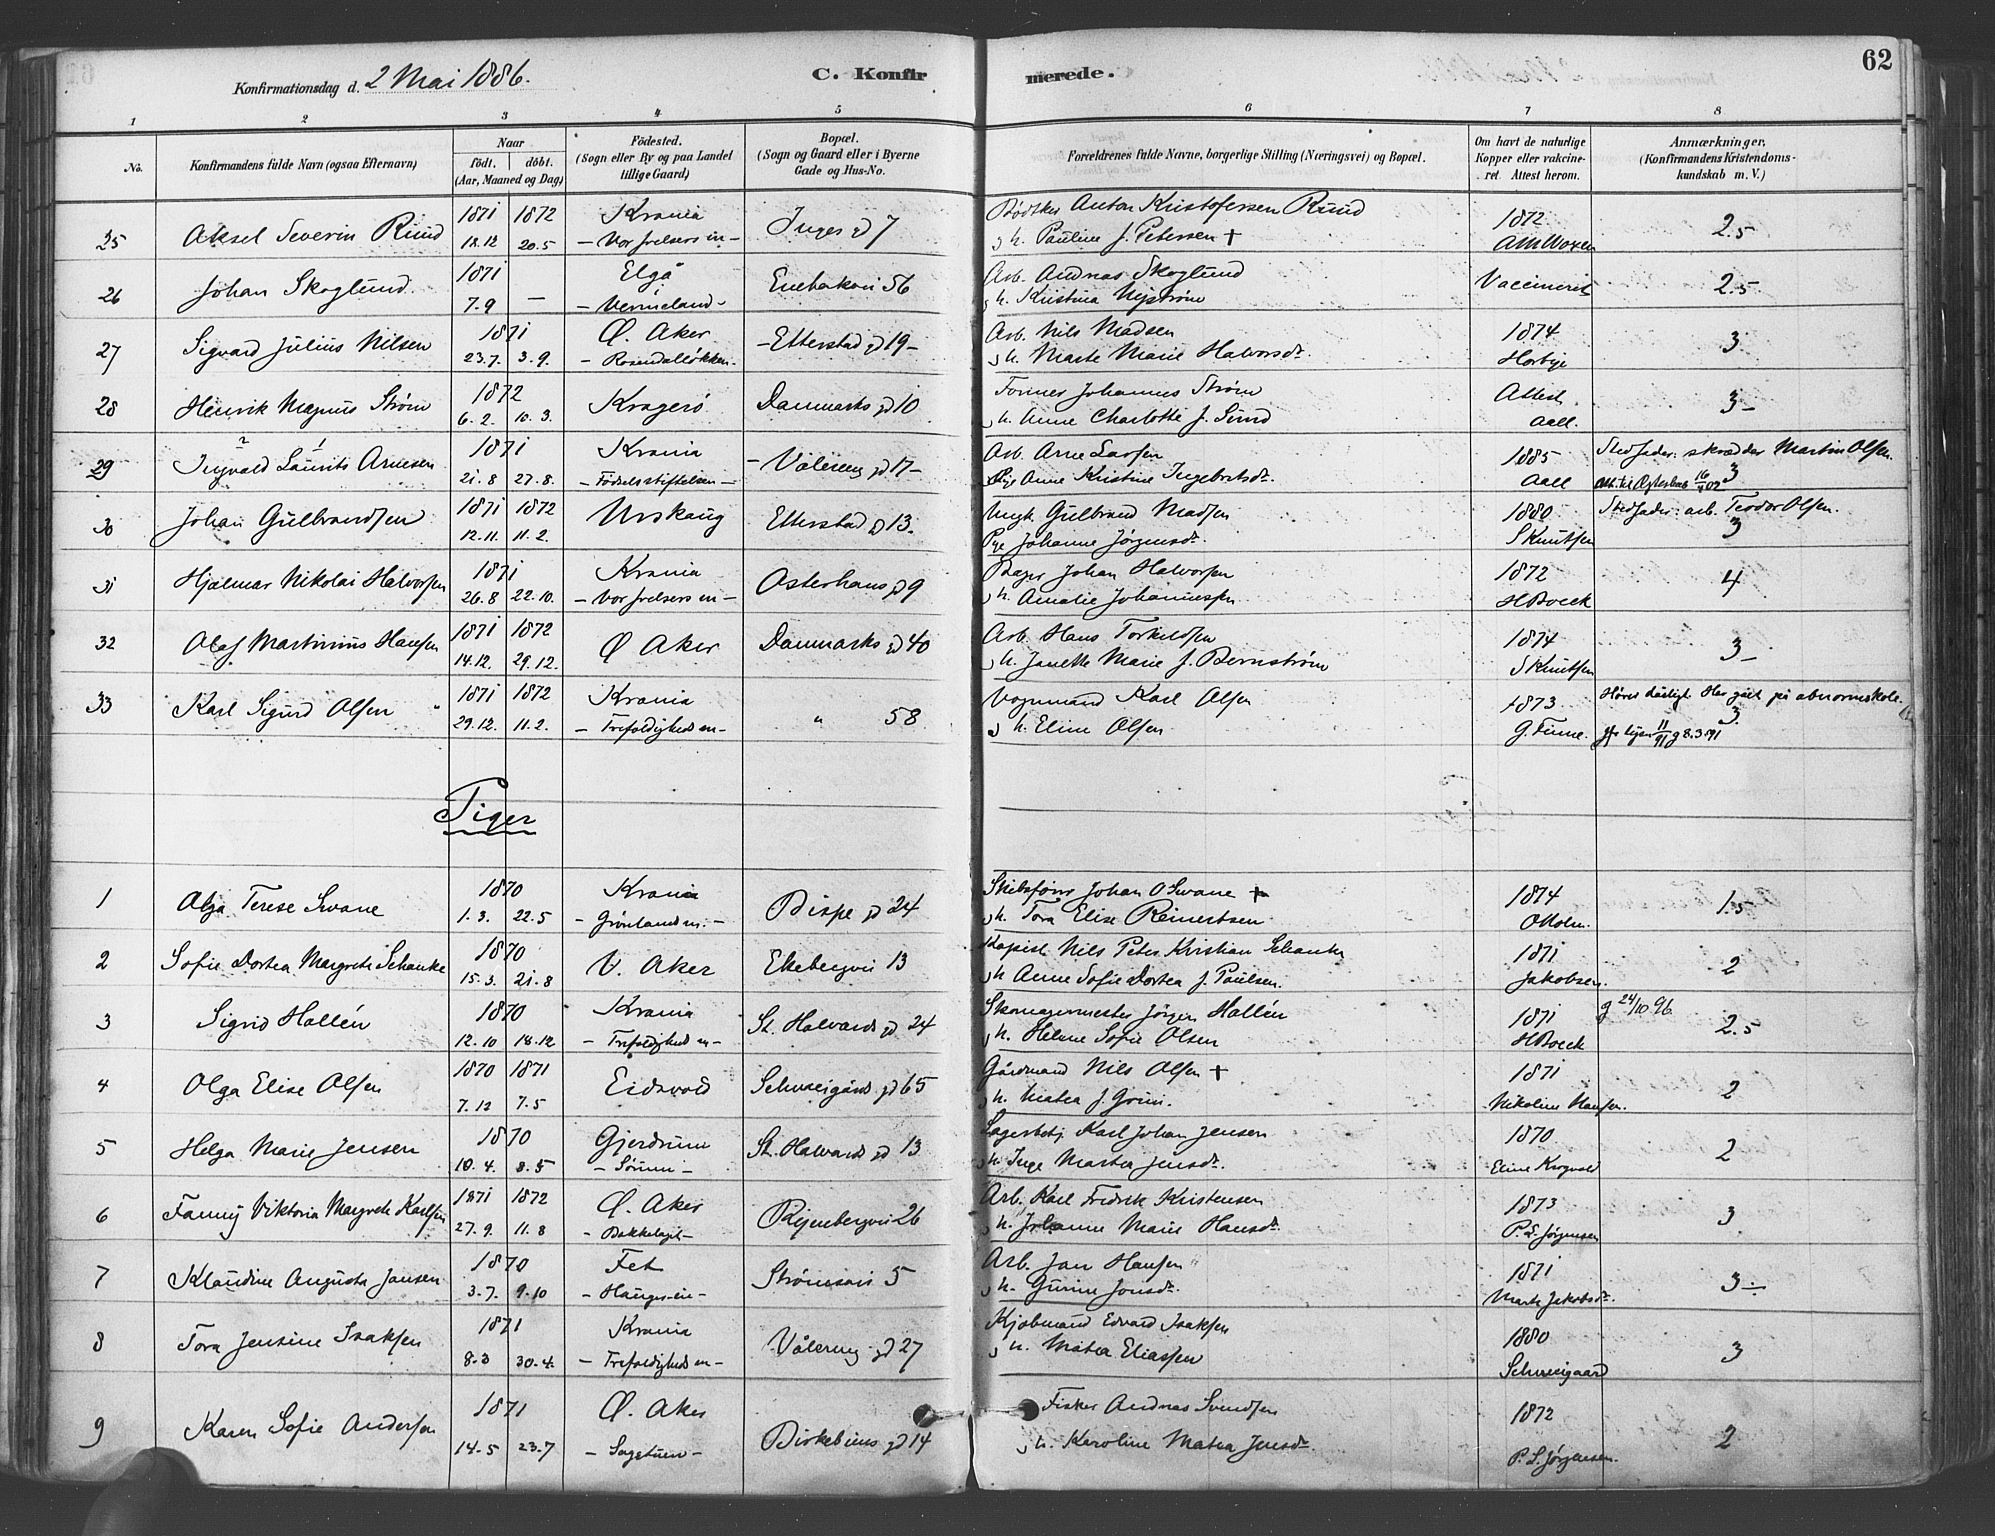 62
Konfirmationsdag d. 2 Mai 1886.
C. Konfirmerede.
1 2 3 4 5 6 7 8
No. | Konfirmandens fulde Navn (ogsaa Efternavn) | Naar födt. döbt. (Aar, Maaned og Dag) | Födested. (Sogn eller By og paa Landet tillige Gaard) | Bopæl. (Sogn og Gaard eller i Byerne Gade og Hus-No. | Forældrenes fulde Navne, borgerlige Stilling (Næringsvei) og Bopæl. | Om havt de naturlige Kopper eller vakcineret. Attest herom. | Anmærkninger, (Konfirmandens Kristendomskundskab m. V.)
25 | Aksel Severin Ruud | 1871 18.12 | 1872 20.5 | Krania – Vor Frelsers m – | Inges gd 7 | Bödtker Anton Kristofersen Ruud
h. Pauline f. Petersen + | 1872 | 2.5
26 | Johan Skoglund. | 1871 7.9 | — | Elgå – Vermeland – | Enebakvei 56 | Arb. Andreas Skoglund
h. Kristina Nyström | Vaccineret | 2.5
27 | Sigvard Julius Nilsen | 1871 23.7. | 3.9. | Ø. Aker – Rosendalløkken. | – Etterstad gd 19 – | Arb. Nils Madsen
h. Marte Marie Halvorsdr. | 1874 Horbye | 3
28 | Henrik Magnus Strøm | 1872 6.2. | 10.3. | Kragerö | Danmarks gd 10 | Former Johannes Strøm
h. Anne Charlotte f. Lund | Attest. Aall. | 3 –
29 | Ingvald Laurits Arnesen | 1871 21.8 | 27.8. | Krania – Födselsstiftelsen – | – Vålereng gd 17 – | Arb. Arne Larsen
Pige Anne Kristine Ingebretsdr. | 1885 Aall | Stedfader: skrædder Martin Olsen.
3
Att. til Ægteskab 16/4 02
30 | Johan Gulbrandsen | 1871 12.11. | 1872 11.2. | Urskoug | Etterstad gd 13. | Ungk. Gulbrand Madsen
Pige Johanne Jørgensdr. | 1880 S Knutsen | Stedfader: arb. Teodor Olsen.
3
31 | Hjalmar Nikolai Halvorsen | 1871 26.8 | 22.10. | Krania – Vor Frelsers m – | Osterhaus gd 9 | Bager Johan Halvorsen
h. Amalie Johannessen | 1872 H Boeck | 4
32 | Olaf Martinius Hansen | 1871 14.12. | 1872 29.12. | Ø Aker | Danmarks gd 40 | Arb. Hans Torkildsen
h. Janette Marie f. Bernstrøm | 1874 S Knutsen | 3 –
33 | Karl Sigurd Olsen | 1871 29.12. | 1872 11.2. | Krania – Trefoldigheds m – | " 58 | Vognmand Karl Olsen
h. Eline Olsen | 1873 G. Finne. | Hörer dårligt Har gået på abnormskole.
3
Piger
1 | Olga Terese Svane | 1870 1.3. | 22.5 | Krania – Grønlands m. – | Bispe gd 24 | Skibsförer Johan O Svane +
h. Tora Elise Reinertsen | 1874 | 1.5
2 | Sofie Dortea Margrete Schanke | 1870 15.3. | 21.8 | V. Aker | Ekebergvei 13 | Kopist Nils Peter Kristian Schanke
h Anne Sofie Dortea f. Paulsen. | 1871 Jakobsen. | 2
3 | Sigrid Hallén | 1870 12.10 | 18.12 | Krania – Trefoldigheds m – | St. Halvards gd 24 | Skomagermester Jörgen Hallén
h. Helene Sofie Olsen | 1871 H Boeck | g 24/10 96.
2.5
4 | Olga Elise Olsen | 1870 7.12 | 1871 7.5 | Eidsvold | Schweigårds gd 65 | Gårdmand Nils Olsen +
h. Matea f. Grini. | 1871 Nikoline Hansen. | 2
5 | Helga Marie Jensen | 1870 10.4. | 8.5 | Gjerdrum | St. Halvards gd 13 | Lagerbetj. Karl Johan Jensen
h Inge Martea Jensdr. | 1870 Eline Krogvold | 2
6 | Fanny Viktoria Margrete Karlsen | 1871 27.9. | 1872 11.8 | Ø. Aker – Bakkehaget – | Ryenbergvei 26 | Arb. Karl Fredrik Kristensen
h. Johanne Marie Hansdr. | 1873 P. L. Jørgensen | 3
7 | Klaudine Augusta Jansen | 1870 3.7. | 9.10 | Fet – Hauger-eie – | Strömsvei 5 | Arb. Jan Hansen
h. Gunine Jonsdr. | 1871 Marte Jakobsdr. | 3 –
8 | Tora Jensine Isaksen | 1871 8.3 | 30.4. | Krania – Trefoldigheds m – | Vålereng gd 27 | Kjöbmand Edvard Isaksen
h. Matea Eliassen | 1880 Schweigaard | 3
9 | Karen Sofie Andersen | 1871 14.5 | 23.7 | Ø. Aker – Sagstuen – | Birkebeins gd 14 | Fisker Andreas Svendsen
h. Karoline Matea Jensdr. | 1872 P. L. Jørgensen. | 2